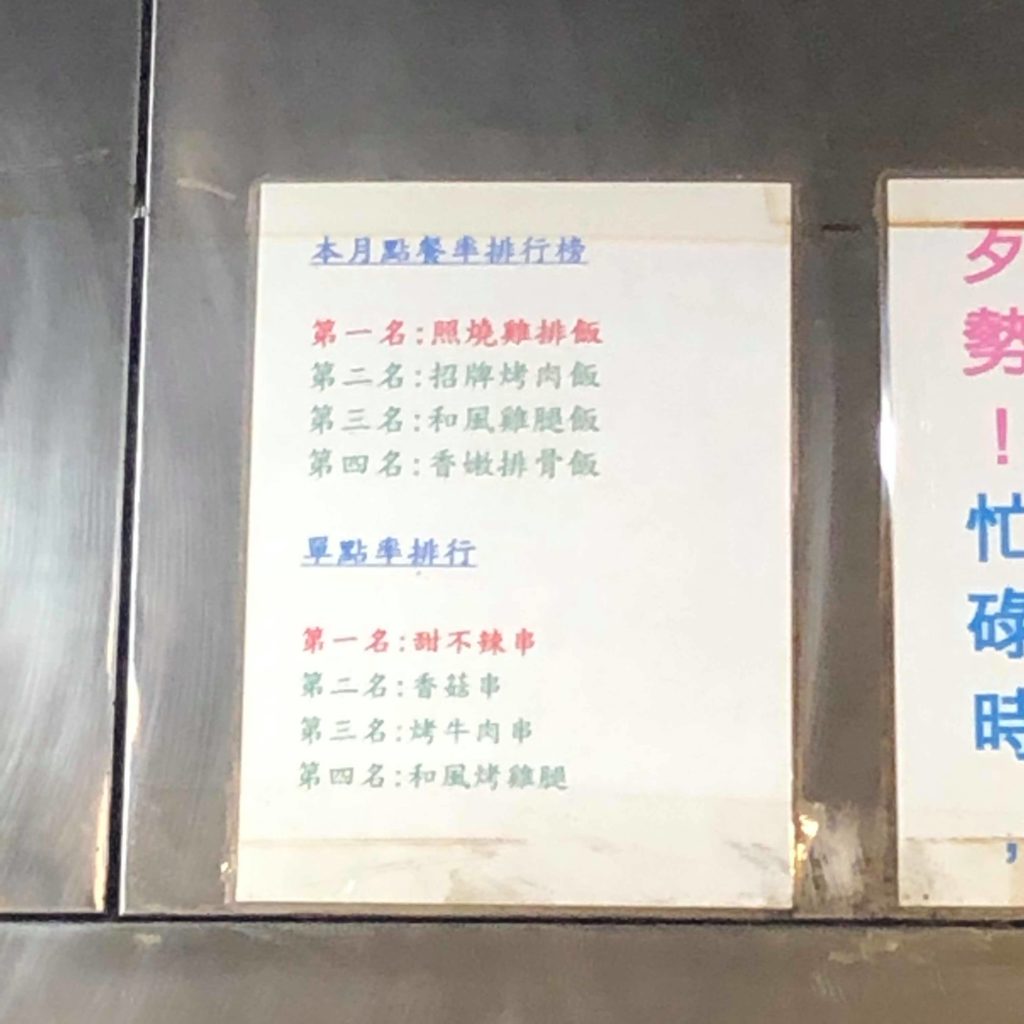 本月點餐率排行榜
第一名:照燒雞排飯
第二名:招牌烤肉飯
第三名:和風雞腿飯
第四名:香嫩排骨飯
單點率排行
第一名:甜不辣串
第二名:香菇串
第三名:烤牛肉串
第四名:和風烤雞腿
歹勢!忙碌時,